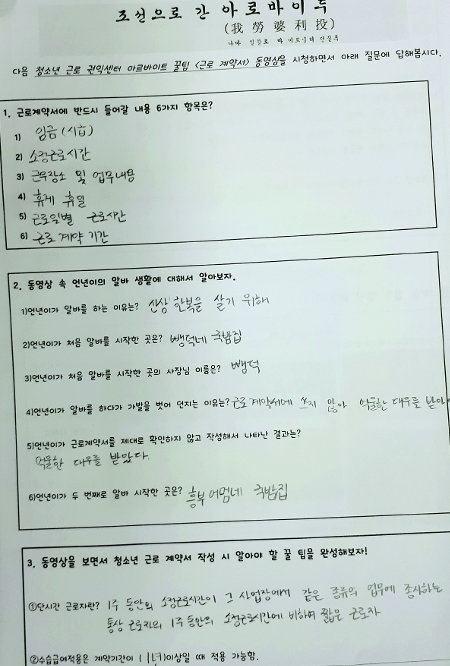 조선으로 간 아르바이두
(我 勞 婆 利 投)
다음 청소년 근로 권익센터 아르바이트 꿀팁 <근로 계약서> 동영상을 시청하면서 아래 질문에 답해봅시다.
1. 근로계약서에 반드시 들어갈 내용 6가지 항목은?
1) 임금(시급)
2) 소정근로시간
3) 근무장소 및 업무내용
4) 휴게 휴일
5) 근로일별 근로시간
6) 근로 계약 기간
2. 동영상 속 언년이의 알바 생활에 대해서 알아보자.
1)언년이가 알바를 하는 이유는? 신상 한복을 살기 위해
2)언년이가 처음 알바를 시작한 곳은? 뺑덕네 국밥집
3)언년이가 처음 알바를 시작한 곳의 사장님 이름은? 뺑덕
4)언년이가 알바를 하다가 가발을 벗어 던지는 이유는? 근로계약서에 쓰지 않아 억울한 대우를 받아
5)언년이가 근로계약서를 제대로 확인하지 않고 작성해서 나타난 결과는?
억울한 대우를 받았다.
6)언년이가 두 번째로 알바 시작한 곳은? 흥부어멈네 국밥집
3. 동영상을 보면서 청소년 근로 계약서 작성 시 알아야 할 꿀 팁을 완성해보자!
①단시간 근로자란? 1주 동안의 소정근로시간이 그 사업장에게 같은 종류의 업무에 종사하는
통상 근로자의 1주 동안의 소정근로시간에 비하여 짧은 근로자
②수습급여적용은 계약기간이 ( 1년 )이상일 때 적용 가능함.